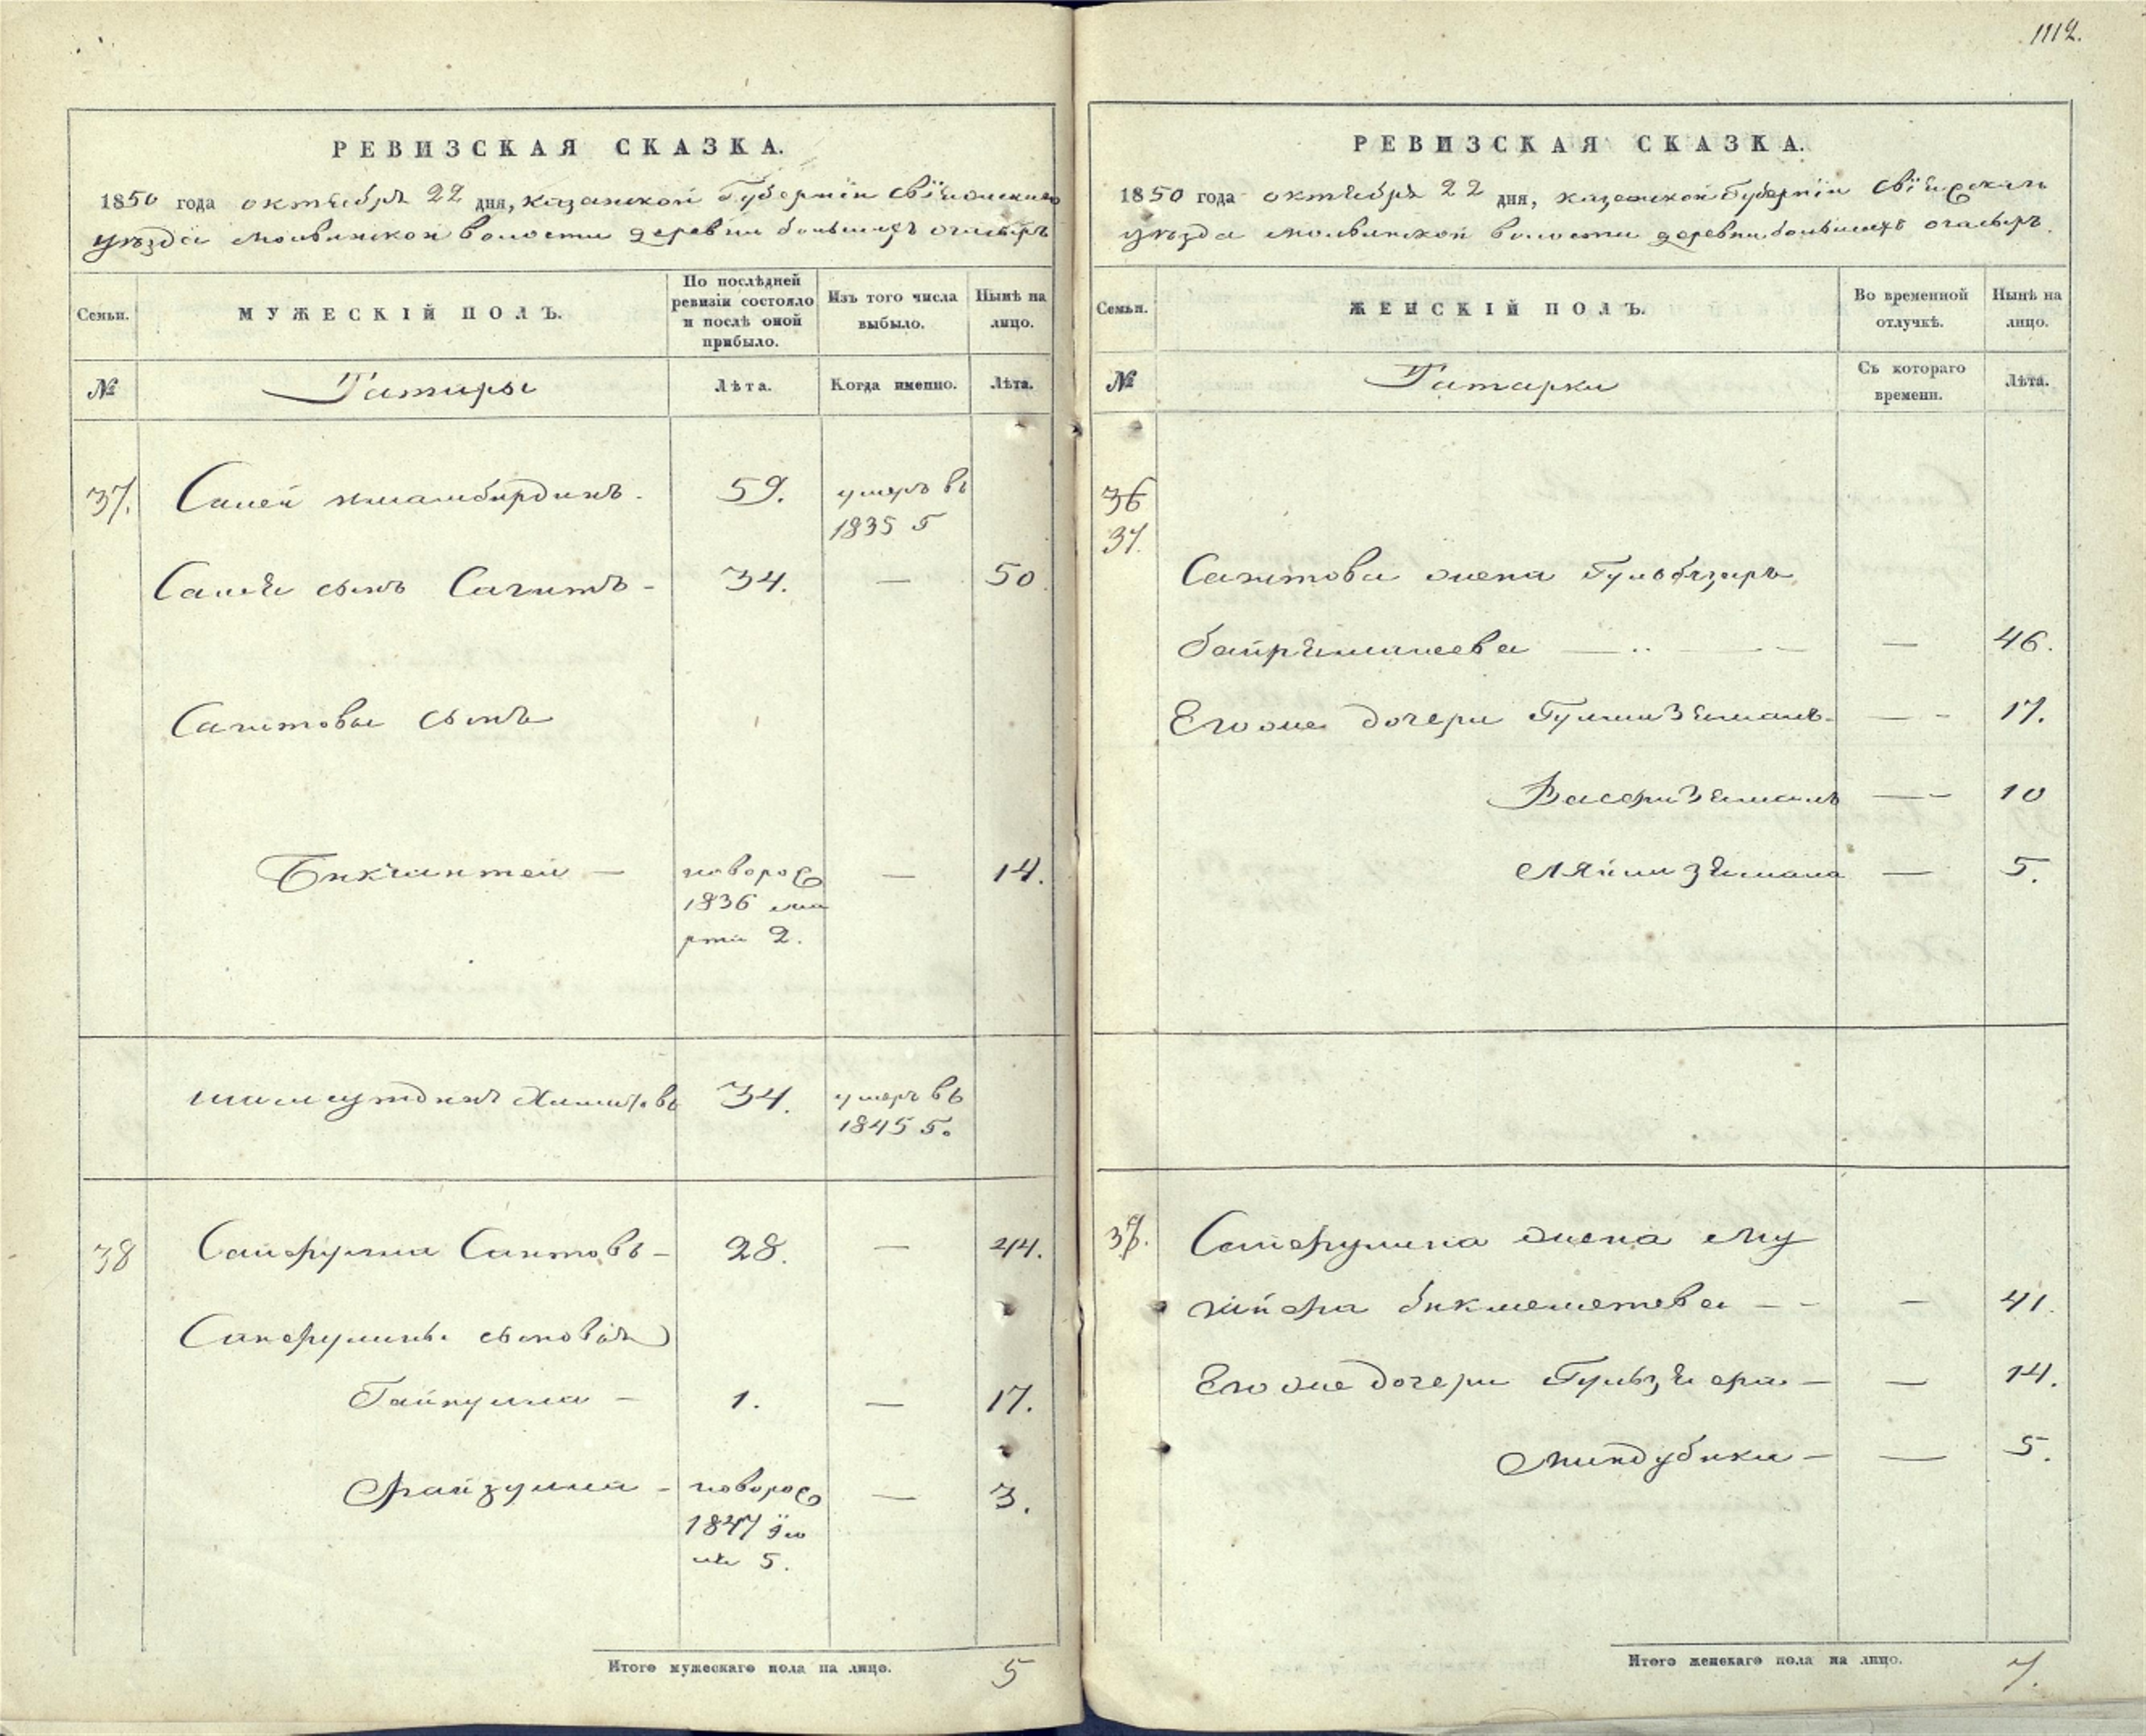 1112.
РЕВИЗСКАЯ СКАЗКА.
1850 года октября 22 дня, казанской Губернїи Свїяжскаго
уѣзда молвинской волости деревни большихъ очасыръ
Семьи.
МУЖЕСКІЙ ПОЛЪ.
По послѣдней ревизіи состояло и послѣ оной прибыло.
Изъ того числа выбыло.
Нынѣ на лицо.
№
Татары
Лѣта.
Когда именно.
Лѣта.
37. Салей 59. умеръ въ
1835 Г
Салея сынъ Сагитъ - 34. — 50
Сагитова сынъ
Бикчинтей — новорож 14.
1836 ма
рта 2.
34. умеръ въ
1845 Г.
38 Сайфулла Саитовъ - 28. — 44.
Сайфуллины сыновья
Гайнулла - 1. — 17.
Файзулла - новорож — 3.
1847 ïю
ля 5.
Итого мужескаго пола на лицо. 5
РЕВИЗСКАЯ СКАЗКА.
1850 года октября 22 дня, казанской Губернїи Свїяжскаго
уѣзда молвинской волости деревни большихъ очасыръ.
Семьи.
ЖЕНСКІЙ ПОЛЪ.
Во временной отлучкѣ.
Нынѣ на лицо.
№
Татарки
Съ котораго времени.
Лѣта.
36
37.
Сагитова жена Гульбязиръ
— 46.
Егоже дочери — 17.
— 10
— 5.
38. Сайфуллина жена Му
гийфа бикмеметева — 41.
Егоже дочери — 14.
Миндубика — 5.
Итого женскаго пола на лицо. 7.